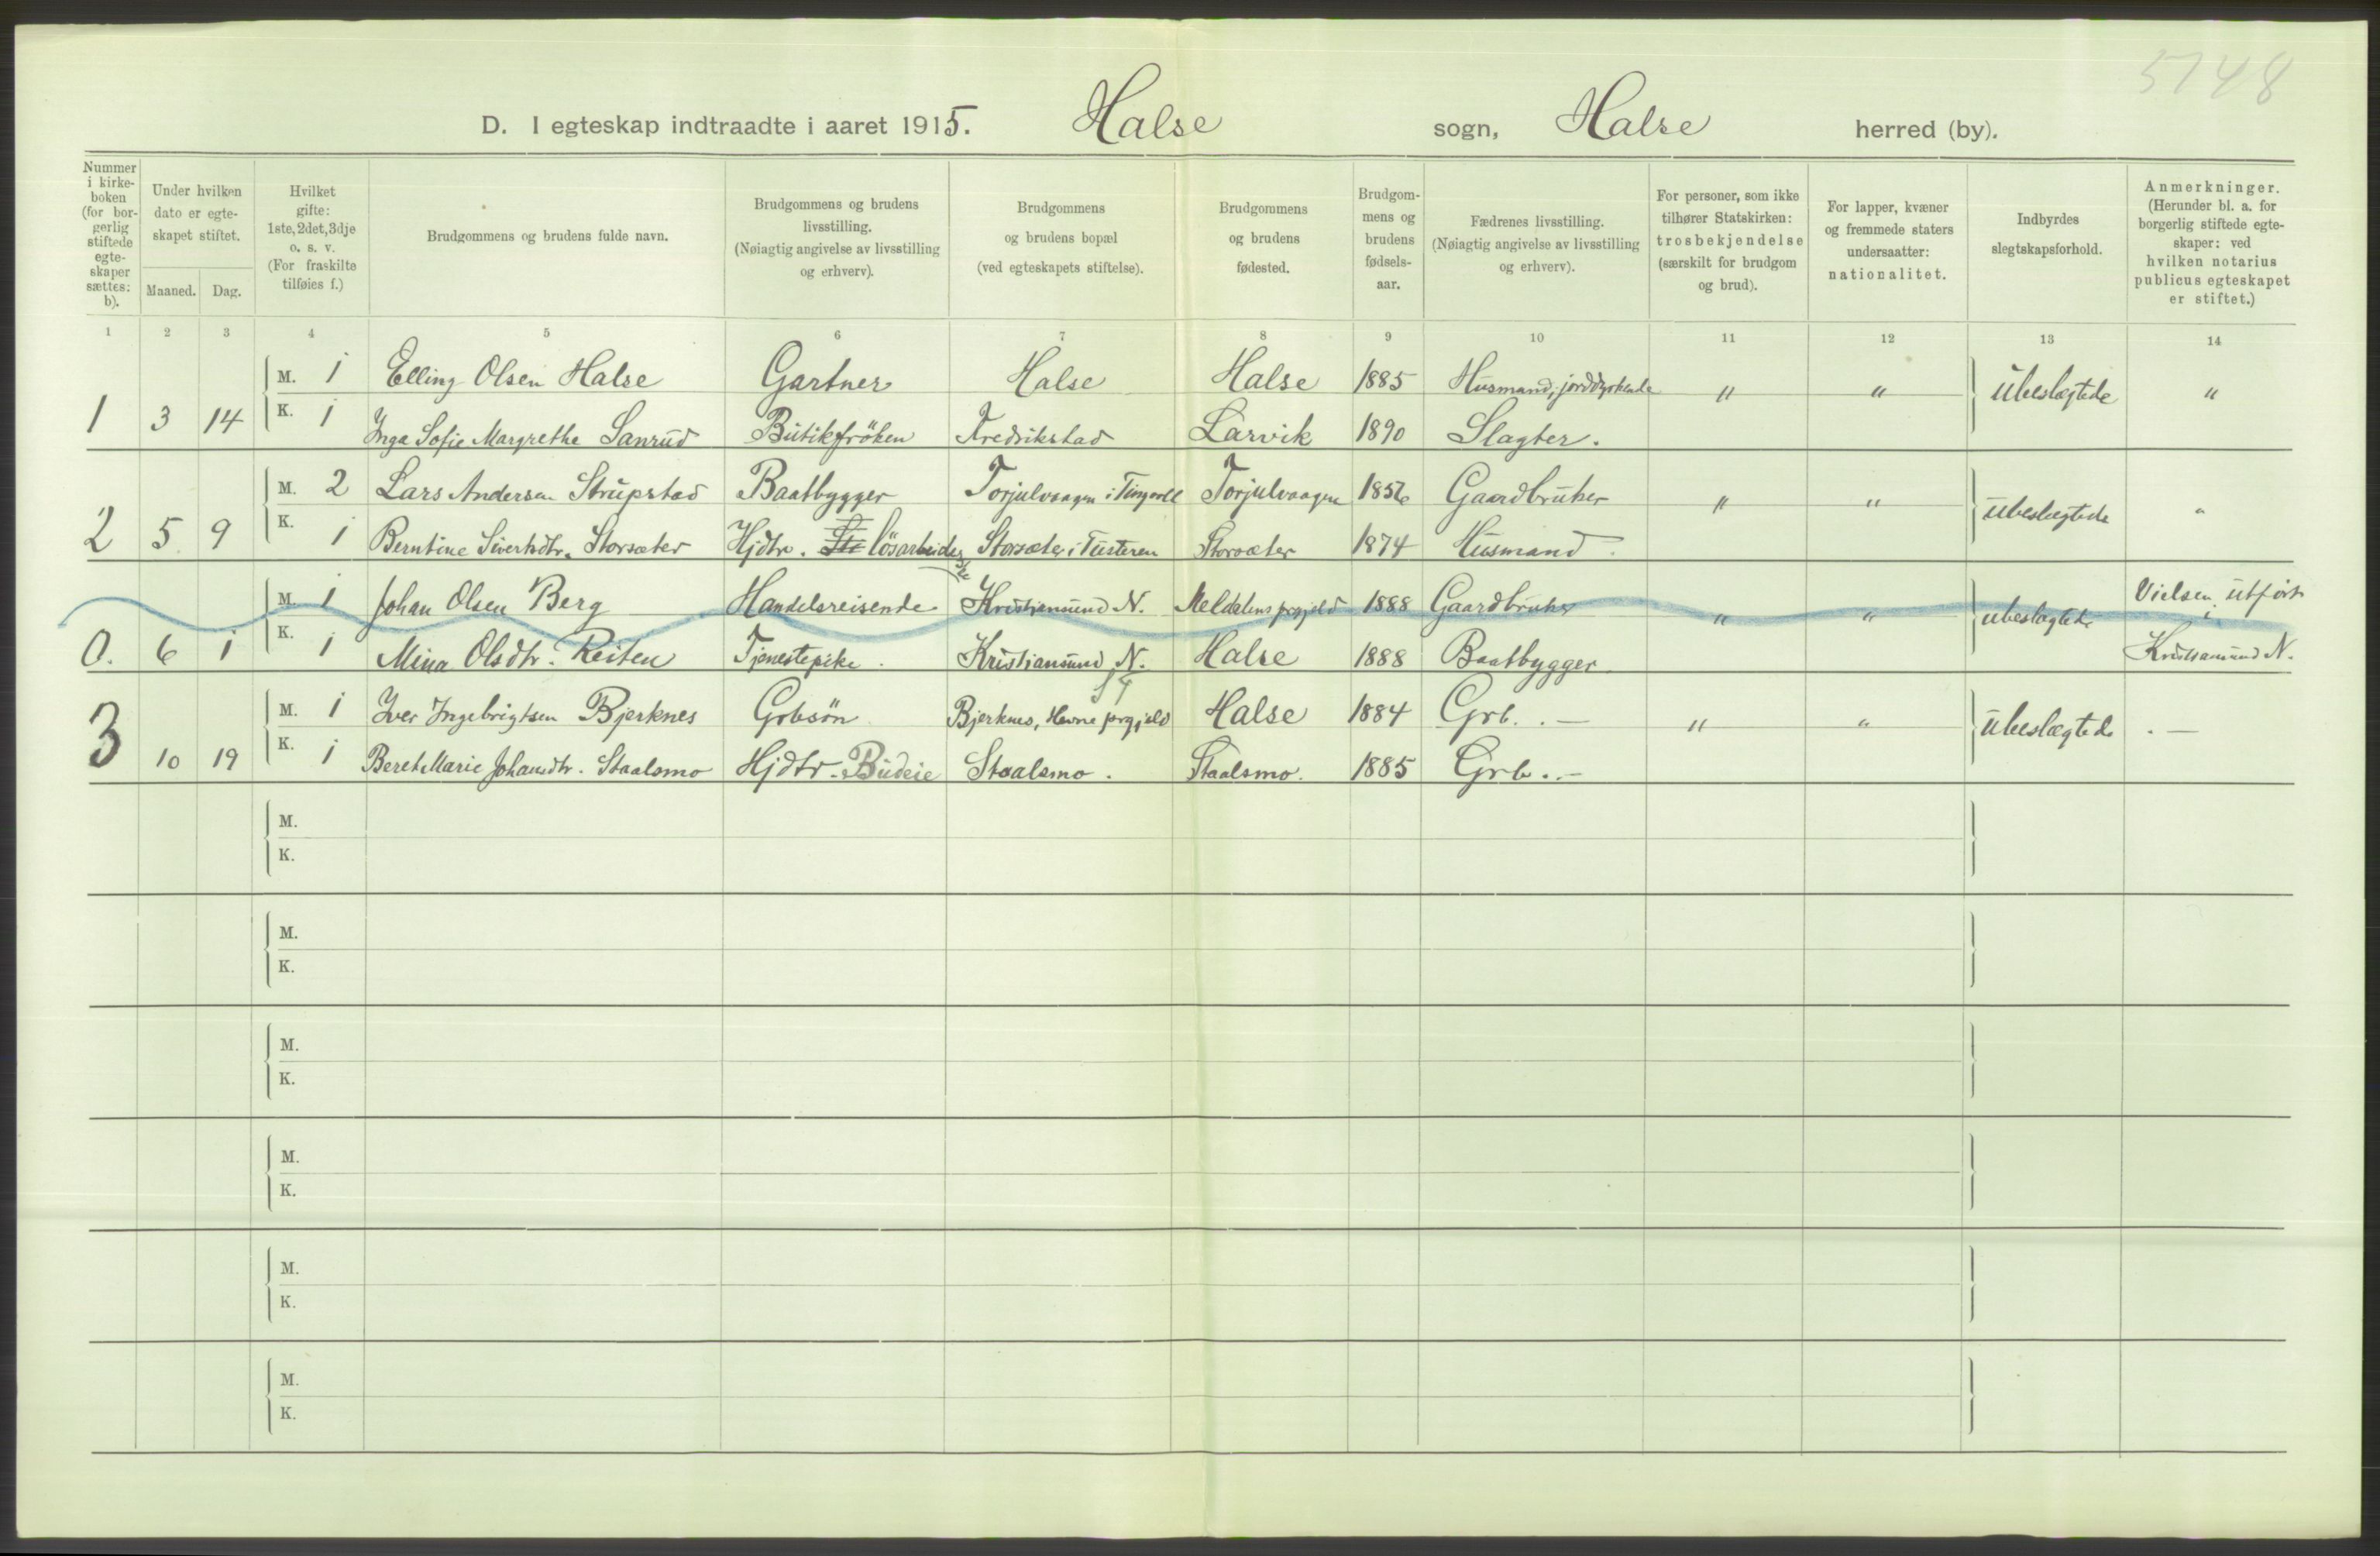 5748
D. I egteskap indtraadte i aaret 1915. Halse sogn, Halse herred (by).
Nummer i kirke- boken (for bor- gerlig stiftede egte- skaper sættes: b).
Under hvilken dato er egte- skapet stiftet.
Maaned. Dag.
Hvilket gifte: 1ste, 2det, 3dje o. s. v. (For fraskilte tilføies f.)
Brudgommens og brudens fulde navn.
Brudgommens og brudens livsstilling. (Nøiagtig angivelse av livsstilling og erhverv).
Brudgommens og brudens bopæl (ved egteskapets stiftelse).
Brudgommens og brudens fødested.
Brudgom- mens og brudens fødsels- aar.
Fædrenes livsstilling. (Nøiagtig angivelse av livsstilling og erhverv).
For personer, som ikke tilhører Statskirken: trosbekjendelse (særskilt for brudgom og brud).
For lapper, kvæner og fremmede staters undersaatter: nationalitet.
Indbyrdes slegtskapsforhold.
Anmerkninger. (Herunder bl. a. for borgerlig stiftede egte- skaper: ved hvilken notarius publicus egteskapet er stiftet.)
1 2 3 4 5 6 7 8 9 10 11 12 13 14
M. 1 Elling Olsen Halse Gartner Halse Halse 1885 Husmand, jorddyrkende " " ubeslægtede "
1 3 14 K. 1 Inga Sofie Margrethe Sanrud Butikfröken Fredrikstad Larvik 1890 Slagter.
M. 2 Lars Andersen Strupstad Baatbygger Torjulvaagen i Tingvoll Torjulvaagen 1856 Gaardbruker " " ubeslegtede "
2 5 9 K. 1 Berntine Sivertsdtr. Storsæter Hjdtr. lösarbeiderske Storsæter i Tusteren Storsæter 1874 Husmand.
M. 1 Johan Olsen Berg Handelsreisende Kristiansund N. Meldalens prgjeld 1888 Gaardbruker " " ubeslægtede Vielsen utført i
0. 6 1 K. 1 Mina Olsdtr. Reiten Tjenestepike. Kristiansund N. Halse 1888 Baatbygger Kristiansund N.
M. 1 Iver Ingebrigtsen Bjerknes Grbsön Bjerknes, Hevne prgjeld Halse 1884 Grb. . — " " ubeslægtede . —
3 10 19 K. 1 Beret Marie Johansdtr. Staalsmo Hjdtr. Budeie Staalsmo. Staalsmo. 1885 Grb. . —
M.
K.
M.
K.
M.
K.
M.
K.
M.
K.
M.
K.